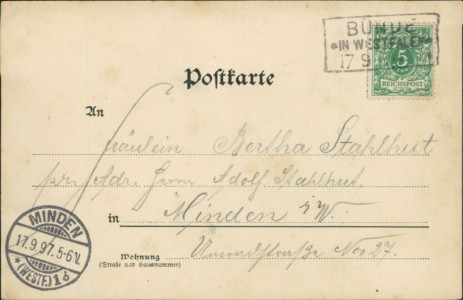 BÜNDE
*IN WESTFALEN*
17 9
5
REICHSPOST
Postkarte
An
Fräulein Bertha Stahlhut
pr. Adr. Herrn Adolf Stahlhut
in Minden i/W.
Wohnung
(Straße und Hausnummer)
No 27.
MINDEN
17.9.97.5-6N.
*(WESTF.)1d